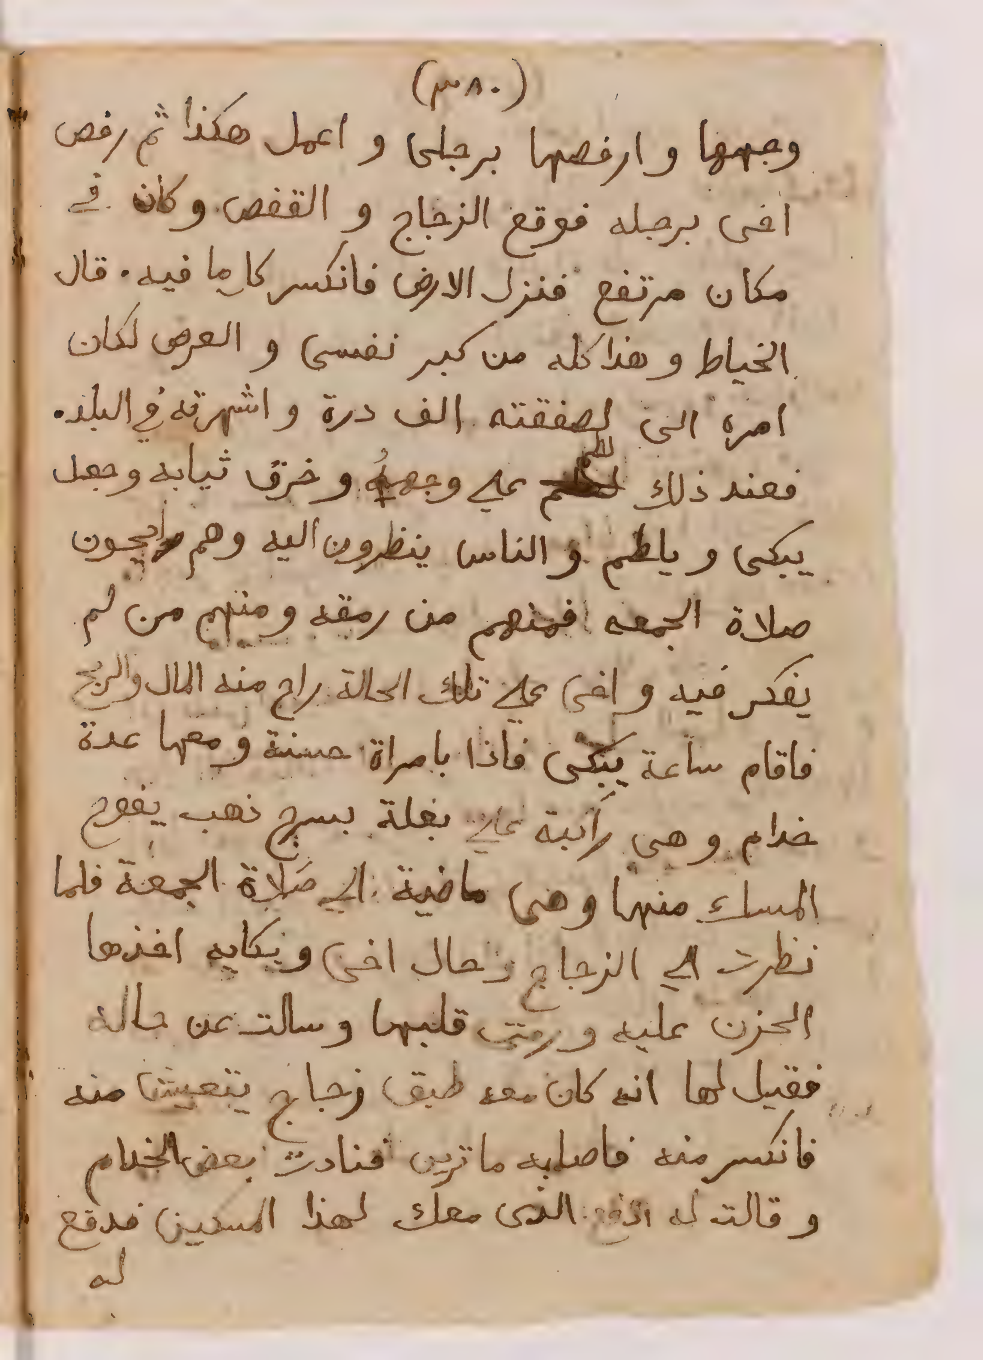 (٣٨٠)
وجهها و ارفصها برجلى و اعمل هكذا ثم رفص
اخى برجله فوقع الزجاج و القفص وكان في
مكان مرتفع فنزل الارض فانكسر كل ما فيه. قال
الخياط و هذا كله من كبر نفسى و العرض لكان
امره الى لصفقته الف درة و اشهرته في البلد.
فعند ذلك لطم على وجهه و خرق ثيابه وجعل
يبكى و ياطم و الناس ينظرون اليه وهم رايحون
صلاة الجمعه فمنهم من رمقه ومنهم من لم
يفكر فيه و اخى على تلك الحالة راح منه المال والربح
فاقام ساعة يبكى فاذا بامراة حسنة ومعها عدة
خدام و هى راكبة على بغلة بسرج ذهب يفوح
المسك منها و هى ماضية الى صلاة الجمعة فلما
نظرت الى الزجاج و حال اخى و بكايه اخذها
الحزن عليه و رق قلبها و سالت عن حاله
فقيل لها انه كان معه طبق زجاج يتعيش منه
فانكسر منه فاصابه ما ترين فنادت بعض الخدام
و قالت له ادفع الذى معك لهذا المسكين فدفع
له